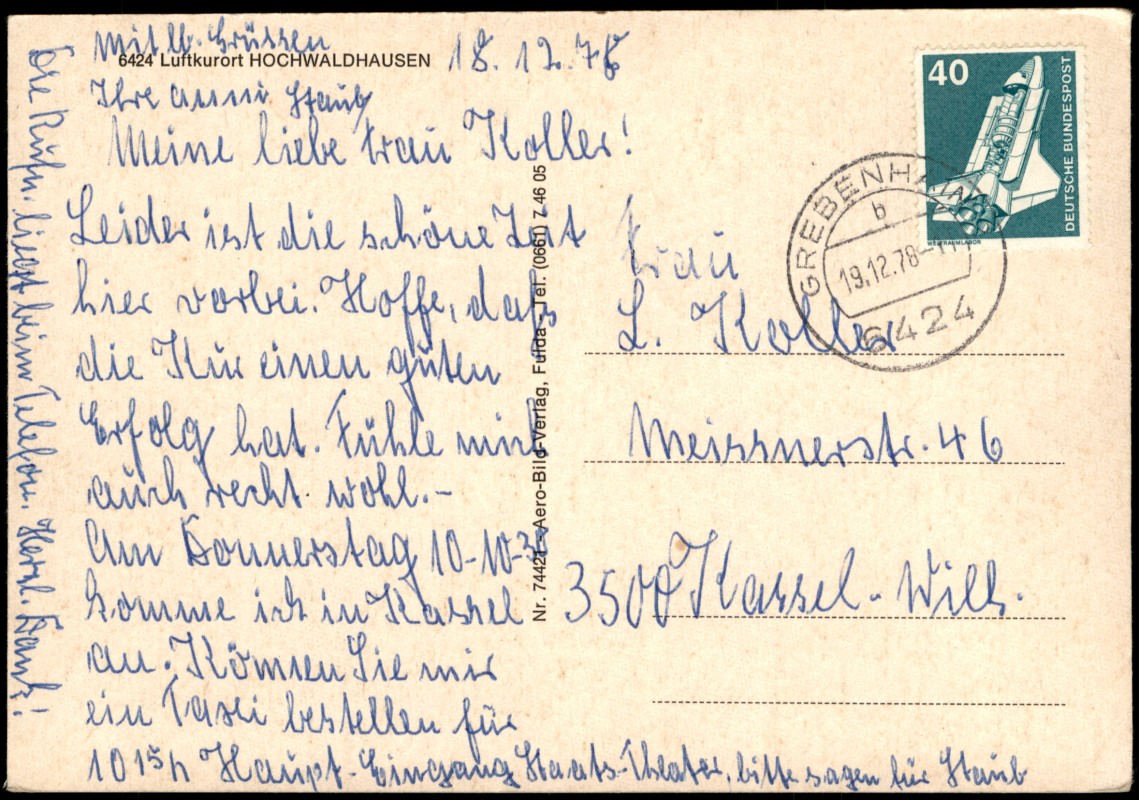 Mit lb. Grüssen
6424 Luftkurort HOCHWALDHAUSEN
18.12.78
Ihre Anni Staub
Meine liebe Frau Koller!
Leider ist die schöne Zeit
hier vorbei. Hoffe, daß
die Kur einen guten
Erfolg hat. Fühle mich
auch recht wohl.-
Am Donnerstag 10-10-30
komme ich in Kassel
an. Können Sie mir
ein Taxi bestellen für
10 15 h Haupt-Eingang Staats-Theater, bitte sagen für Staub
liegt beim Telefon. Herzl. Dank!
Nr. 74421 - Aero-Bild-Verlag, Fulda - Tel. (0661) 7 46 05
40
DEUTSCHE BUNDESPOST
WELTRAUMLABOR
GREBENHAIN
b
19.12.78-11
6424
Frau
L. Koller
Meissnerstr. 46
3500 Kassel-Wilh.